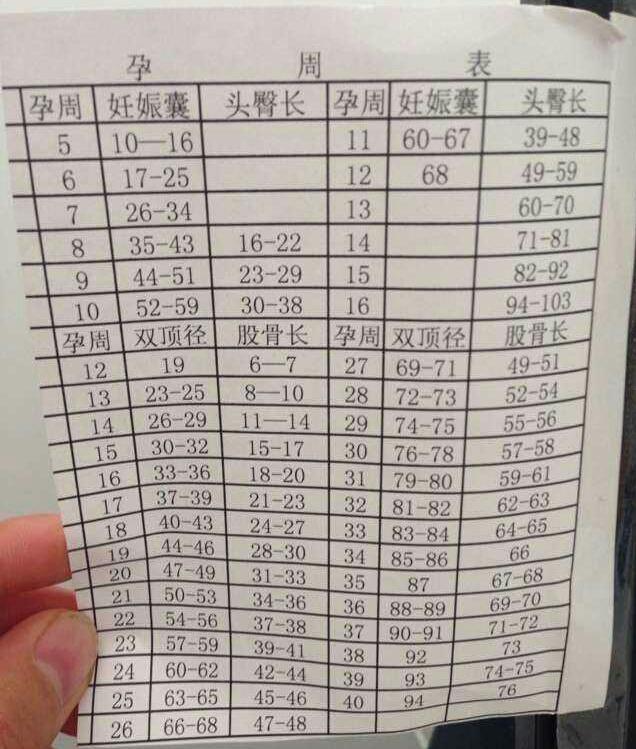 孕 周 表
孕周 妊娠囊 头臀长 孕周 妊娠囊 头臀长
5 10—16 11 60-67 39-48
6 17-25 12 68 49-59
7 26-34 13 60-70
8 35-43 16-22 14 71-81
9 44-51 23-29 15 82-92
10 52-59 30-38 16 94-103
孕周 双顶径 股骨长 孕周 双顶径 股骨长
12 19 6—7 27 69-71 49-51
13 23-25 8—10 28 72-73 52-54
14 26-29 11—14 29 74-75 55-56
15 30-32 15-17 30 76-78 57-58
16 33-36 18-20 31 79-80 59-61
17 37-39 21-23 32 81-82 62-63
18 40-43 24-27 33 83-84 64-65
19 44-46 28-30 34 85-86 66
20 47-49 31-33 35 87 67-68
21 50-53 34-36 36 88-89 69-70
22 54-56 37-38 37 90-91 71-72
23 57-59 39-41 38 92 73
24 60-62 42-44 39 93 74-75
25 63-65 45-46 40 94 76
26 66-68 47-48